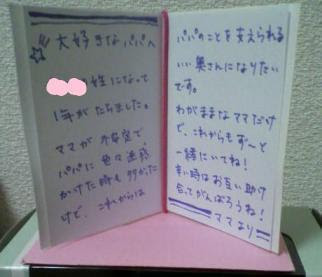 大好きなパパへ
姓になって
1年がたちました。
ママが不安定で
パパに色々迷惑
かけた時も多かった
けど、これからは
パパのことを支えられる
いい奥さんになりたい
です。
わがままなママだけ
ど、これからもずーと
一緒にいてね!
辛い時はお互い助け
合ってがんばろうね!
ママより